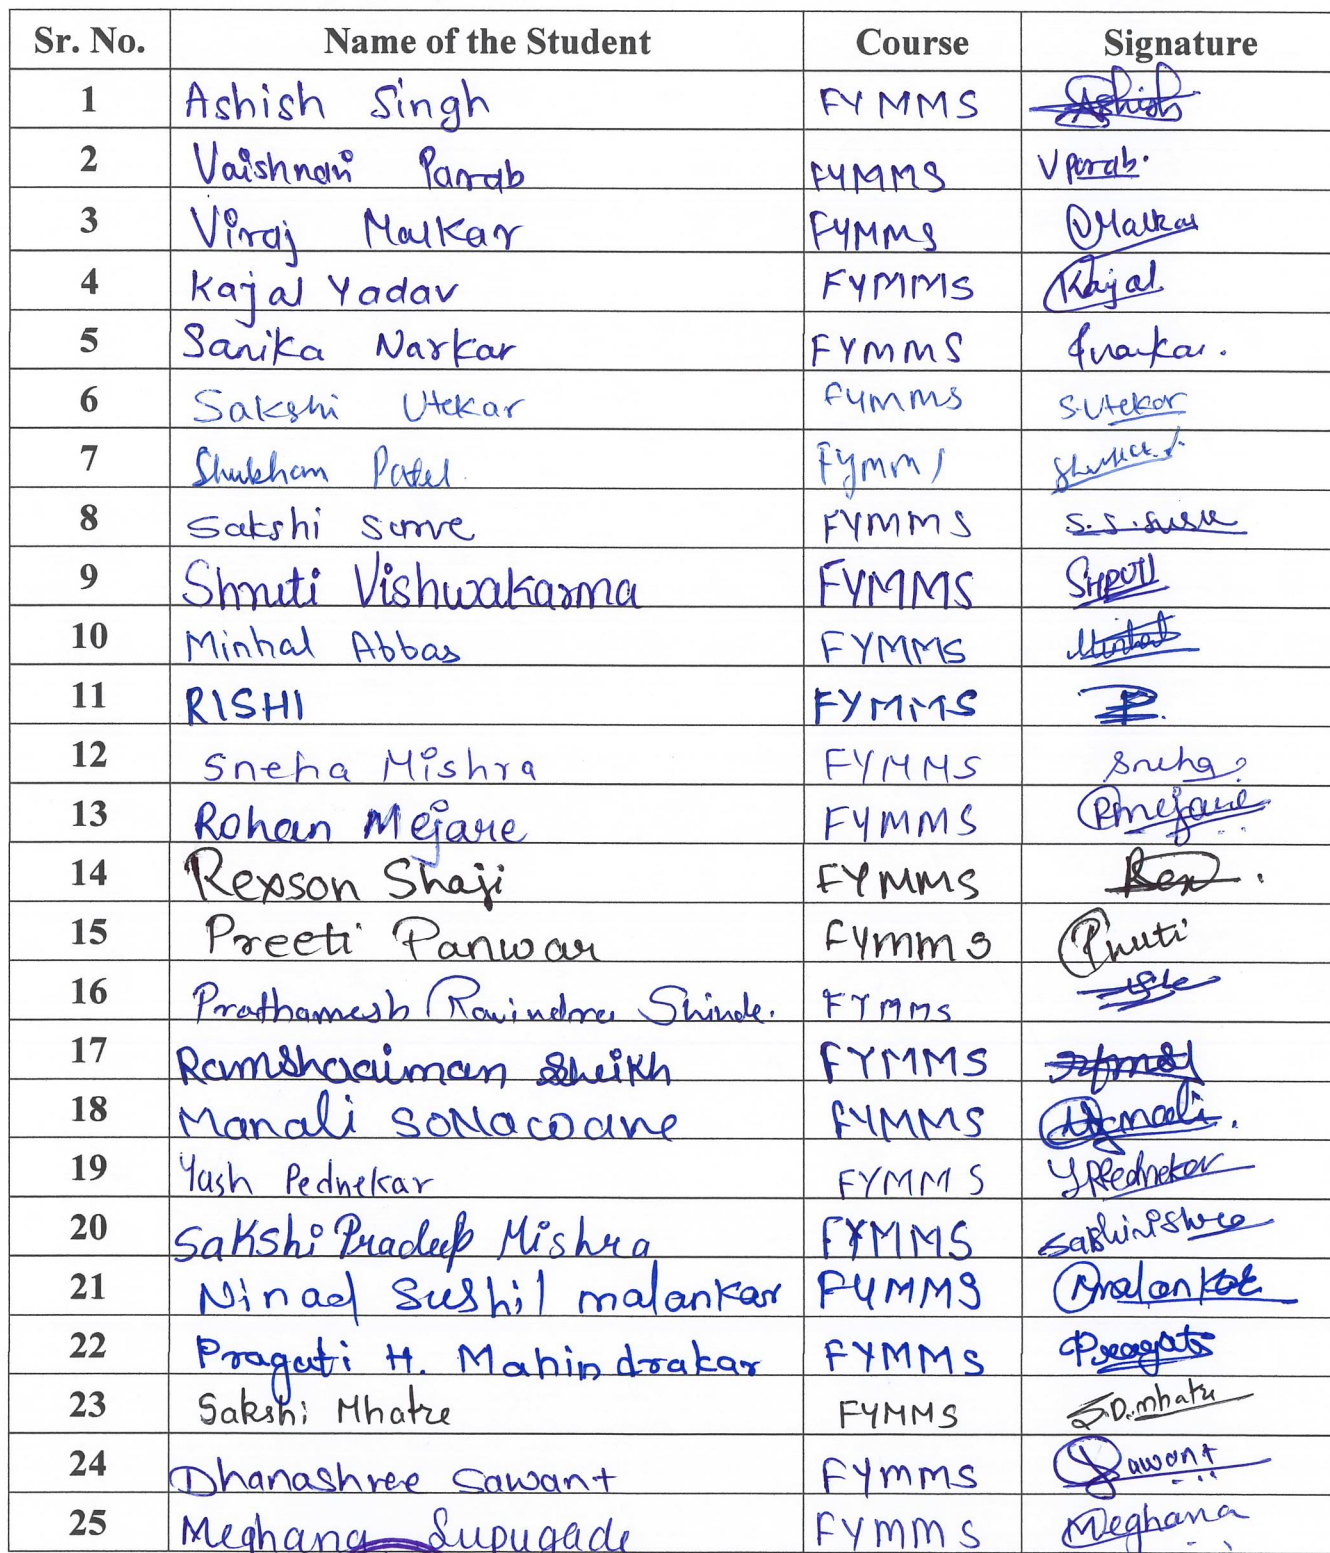 Sr. No. Name of the Student Course Signature
1 Ashish Singh FYMMS Ashish
2 Vaishnavi Parab FYMMS V Parab.
3 Viraj Malkar FYMMS VMalkar
4 Kajal Yadav FYMMS Kajal
5 Sanika Narkar FYMMS
6 Sakshi Utekar FYMMS S.Utekar
7 Shubham Patel FYMMS
8 Sakshi Surve FYMMS S.S.Surve
9 Shruti Vishwakarma FYMMS SHRUTI
10 Minhal Abbas FYMMS Minhal
11 RISHI FYMMS
12 Sneha Mishra FYMMS Sneha
13 Rohan Mejare FYMMS RMejare
14 Rexson Shaji FYMMS Rex
15 Preeti Panwar FYMMS Preeti
16 Prathamesh Ravindra Shinde. FYMMS
17 Ramshaaiman Sheikh FYMMS
18 Manali SONAWANE FYMMS Manali.
19 Yash Pednekar FYMMS YPednekar
20 Sakshi Pradeep Mishra FYMMS
21 Ninad Sushil malankar FYMMS
22 Pragati H. Mahindrakar FYMMS Pragati
23 Sakshi Mhatre FYMMS S.D.mhatre
24 Dhanashree Sawant FYMMS Sawant
25 Meghana Supugade FYMMS Meghana